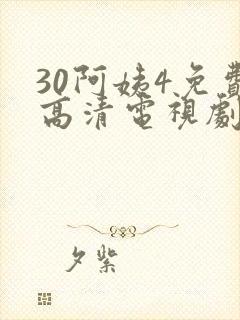 30阿姨4免費
高清電視劇
夕紫